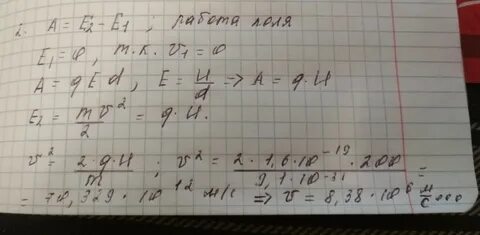 2. A = E₂ - E₁ ; работа поля
E₁ = 0, т.к. v₁ = 0
A = qEd, E = U/d => A = q·U
E₂ = mv²/2 = q·U.
v² = 2·q·U/m ; v² = 2·1,6·10⁻¹⁹·200/9,1·10⁻³¹ =
= 70,329·10¹² м/с => v = 8,38·10⁶ м/с